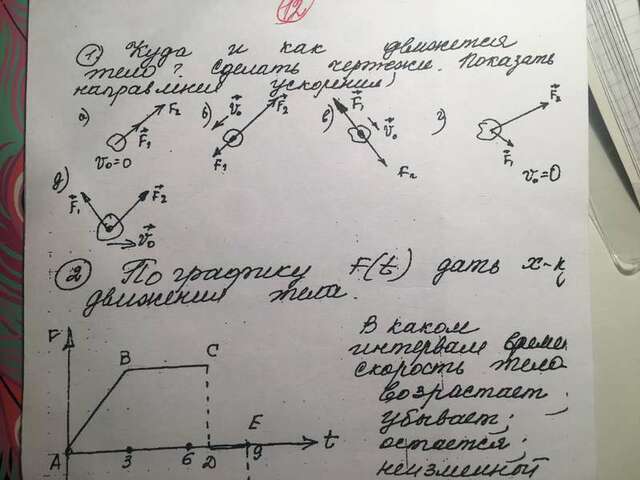 12
① Куда и как движется
тело? Сделать чертежи. Показать
направления ускорения)
а) F₂ F₁ v₀=0
б) v₀ F₂ F₁
в) F₁ v₀ F₂
г) F₂ F₁ v₀=0
д) F₁ F₂ v₀
② По графику F(t) дать х-к
движения тела.
В каком
интервале време
скорость тела
возрастает;
убывает;
остаётся;
неизменной
F
B C
E
A 3 6 D 9 t